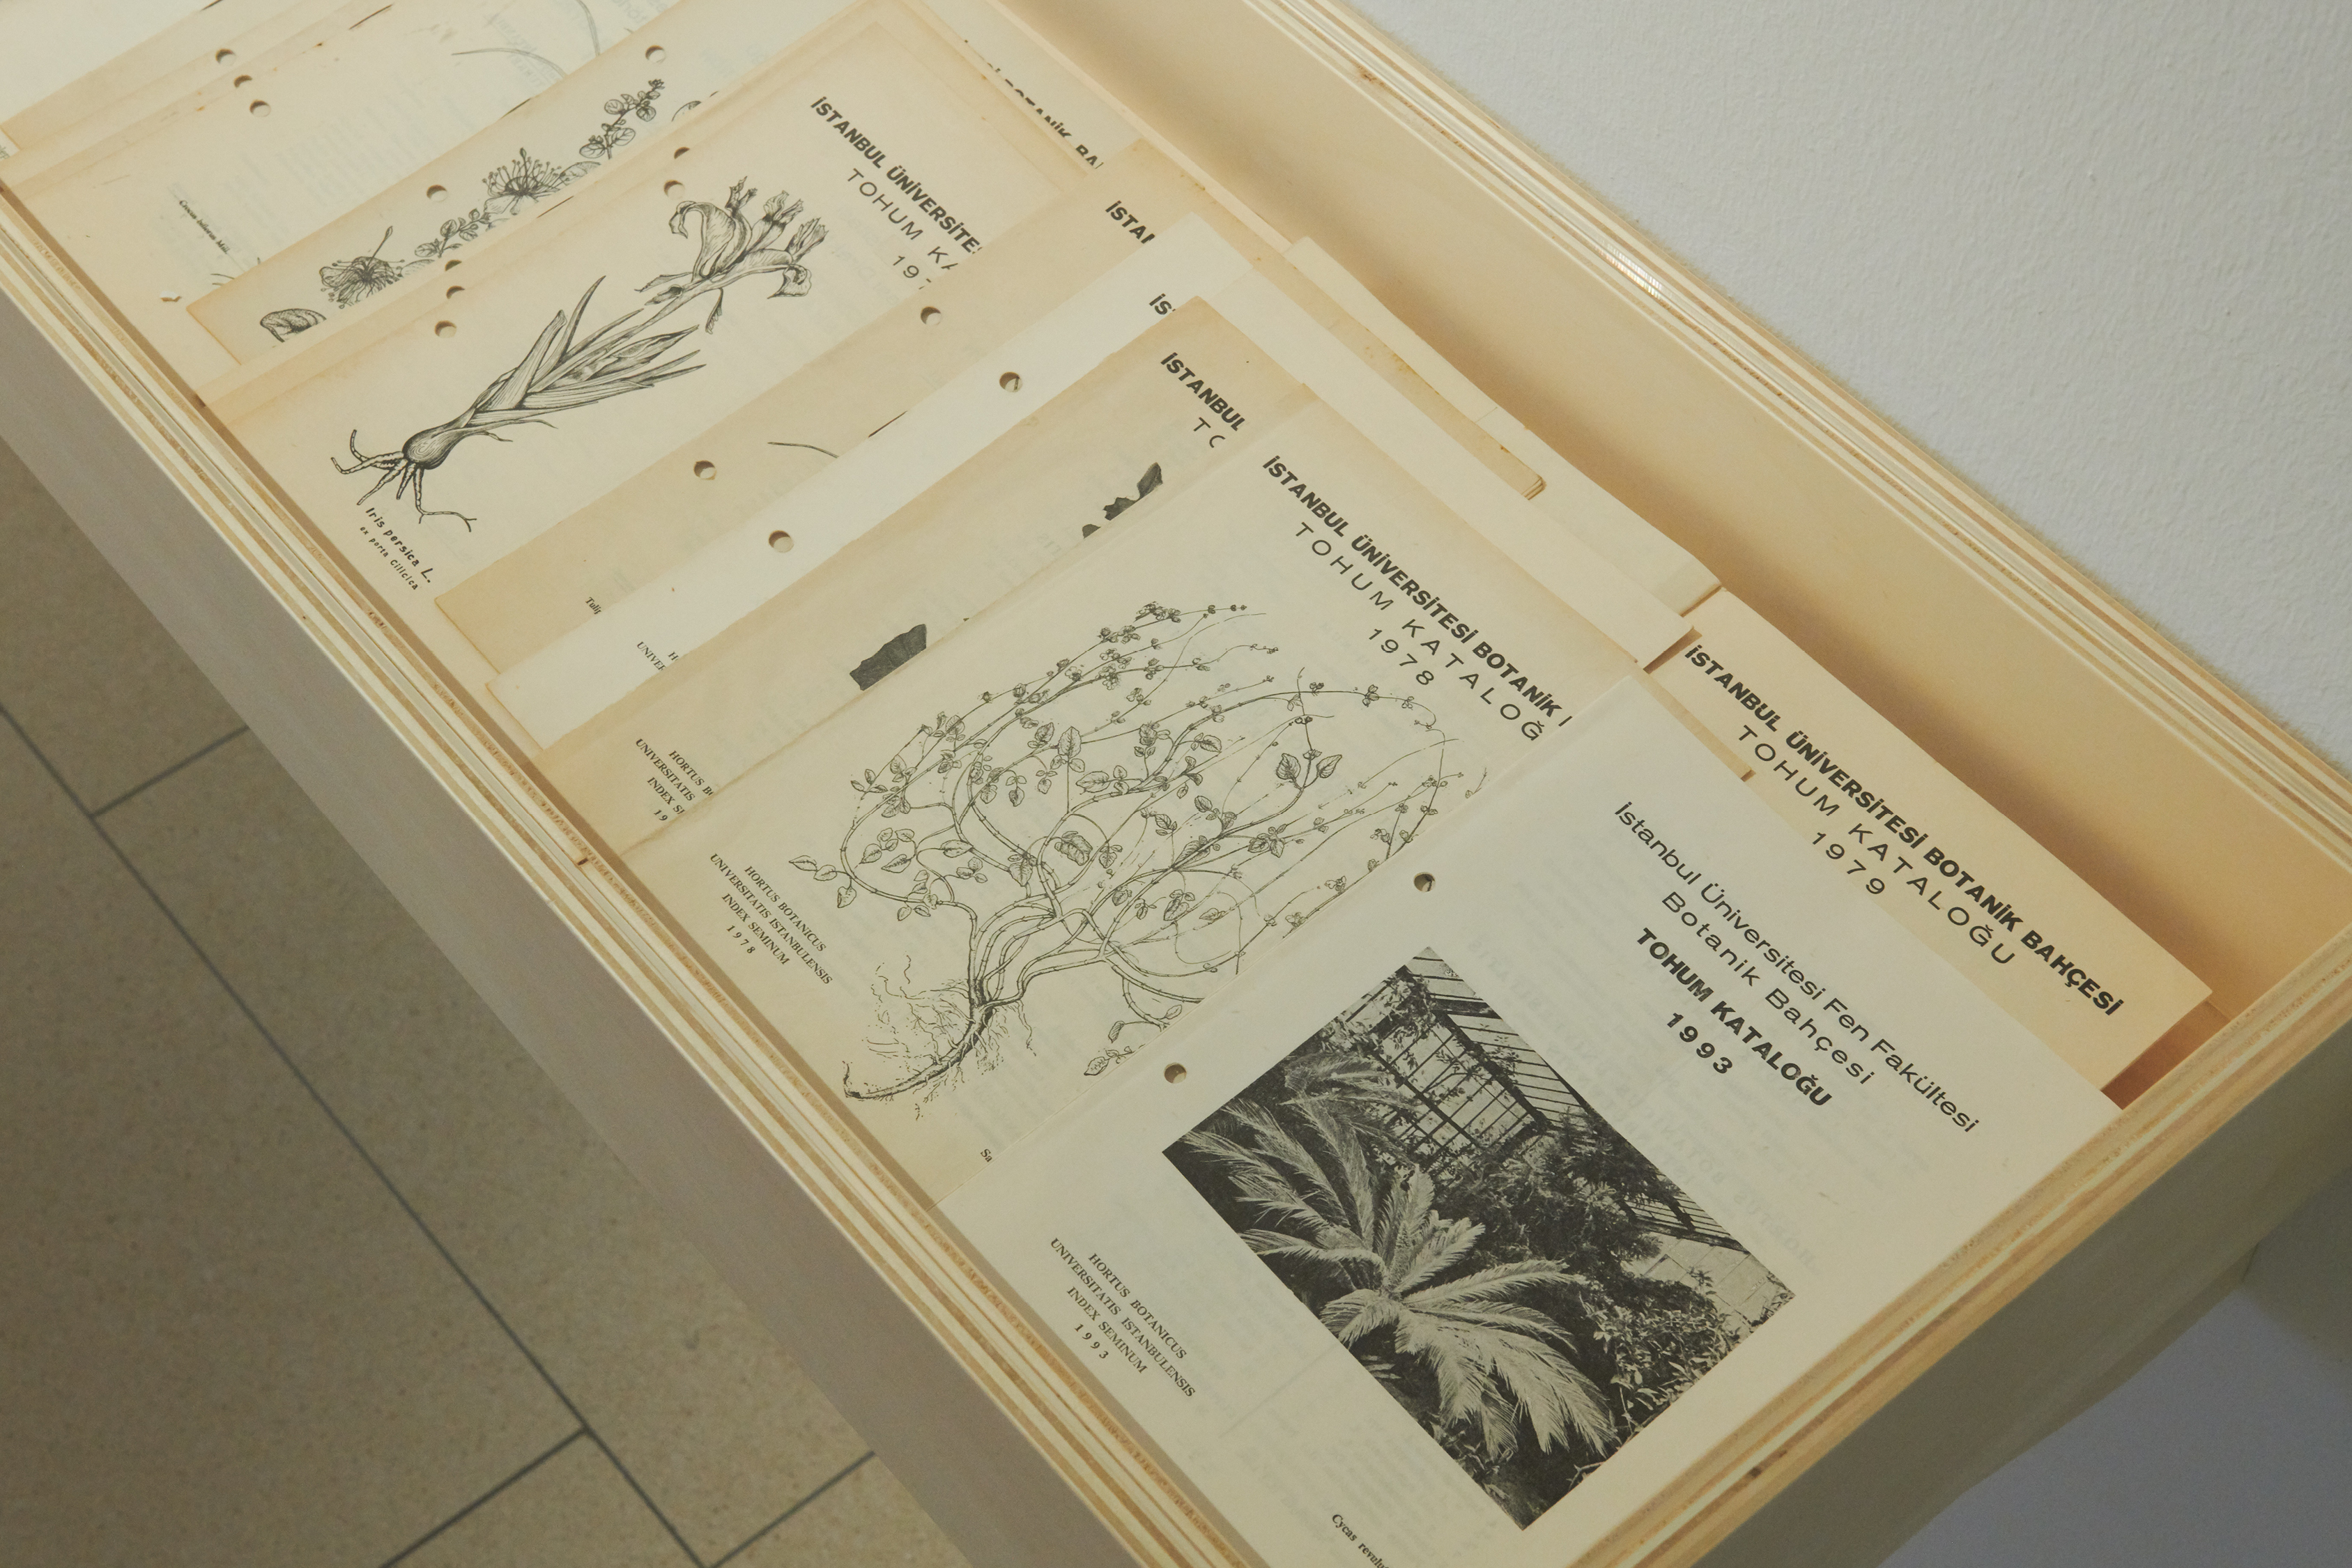 Crocus
İSTANBUL ÜNİVERSİTE
TOHUM KA
197
Iris persica L.
ex porta Cilicica
BOTANİK BA
İSTAN
İS
İSTANBUL
TO
HORTUS
UNIVERSITATIS
INDEX
19
İSTANBUL ÜNİVERSİTESİ BOTANİK
TOHUM KATALOĞ
1978
HORTUS BOTANICUS
UNIVERSITATIS ISTANBULENSIS
INDEX SEMINUM
1978
Sa
İSTANBUL ÜNİVERSİTESİ BOTANİK BAHÇESİ
TOHUM KATALOĞU
1979
İstanbul Üniversitesi Fen Fakültesi
Botanik Bahçesi
TOHUM KATALOĞU
1993
HORTUS BOTANICUS
UNIVERSITATIS ISTANBULENSIS
INDEX SEMINUM
1993
Cycas